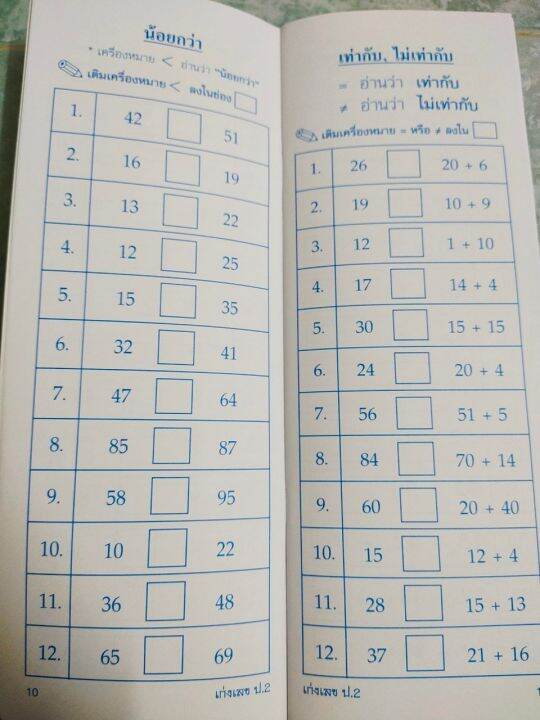 น้อยกว่า
* เครื่องหมาย < อ่านว่า "น้อยกว่า"
เติมเครื่องหมาย < ลงในช่อง
1. 42 51
2. 16 19
3. 13 22
4. 12 25
5. 15 35
6. 32 41
7. 47 64
8. 85 87
9. 58 95
10. 10 22
11. 36 48
12. 65 69
10 เก่งเลข ป.2
เท่ากับ, ไม่เท่ากับ
= อ่านว่า เท่ากับ
≠ อ่านว่า ไม่เท่ากับ
เติมเครื่องหมาย = หรือ ≠ ลงใน
1. 26 20 + 6
2. 19 10 + 9
3. 12 1 + 10
4. 17 14 + 4
5. 30 15 + 15
6. 24 20 + 4
7. 56 51 + 5
8. 84 70 + 14
9. 60 20 + 40
10. 15 12 + 4
11. 28 15 + 13
12. 37 21 + 16
เก่งเลข ป.2